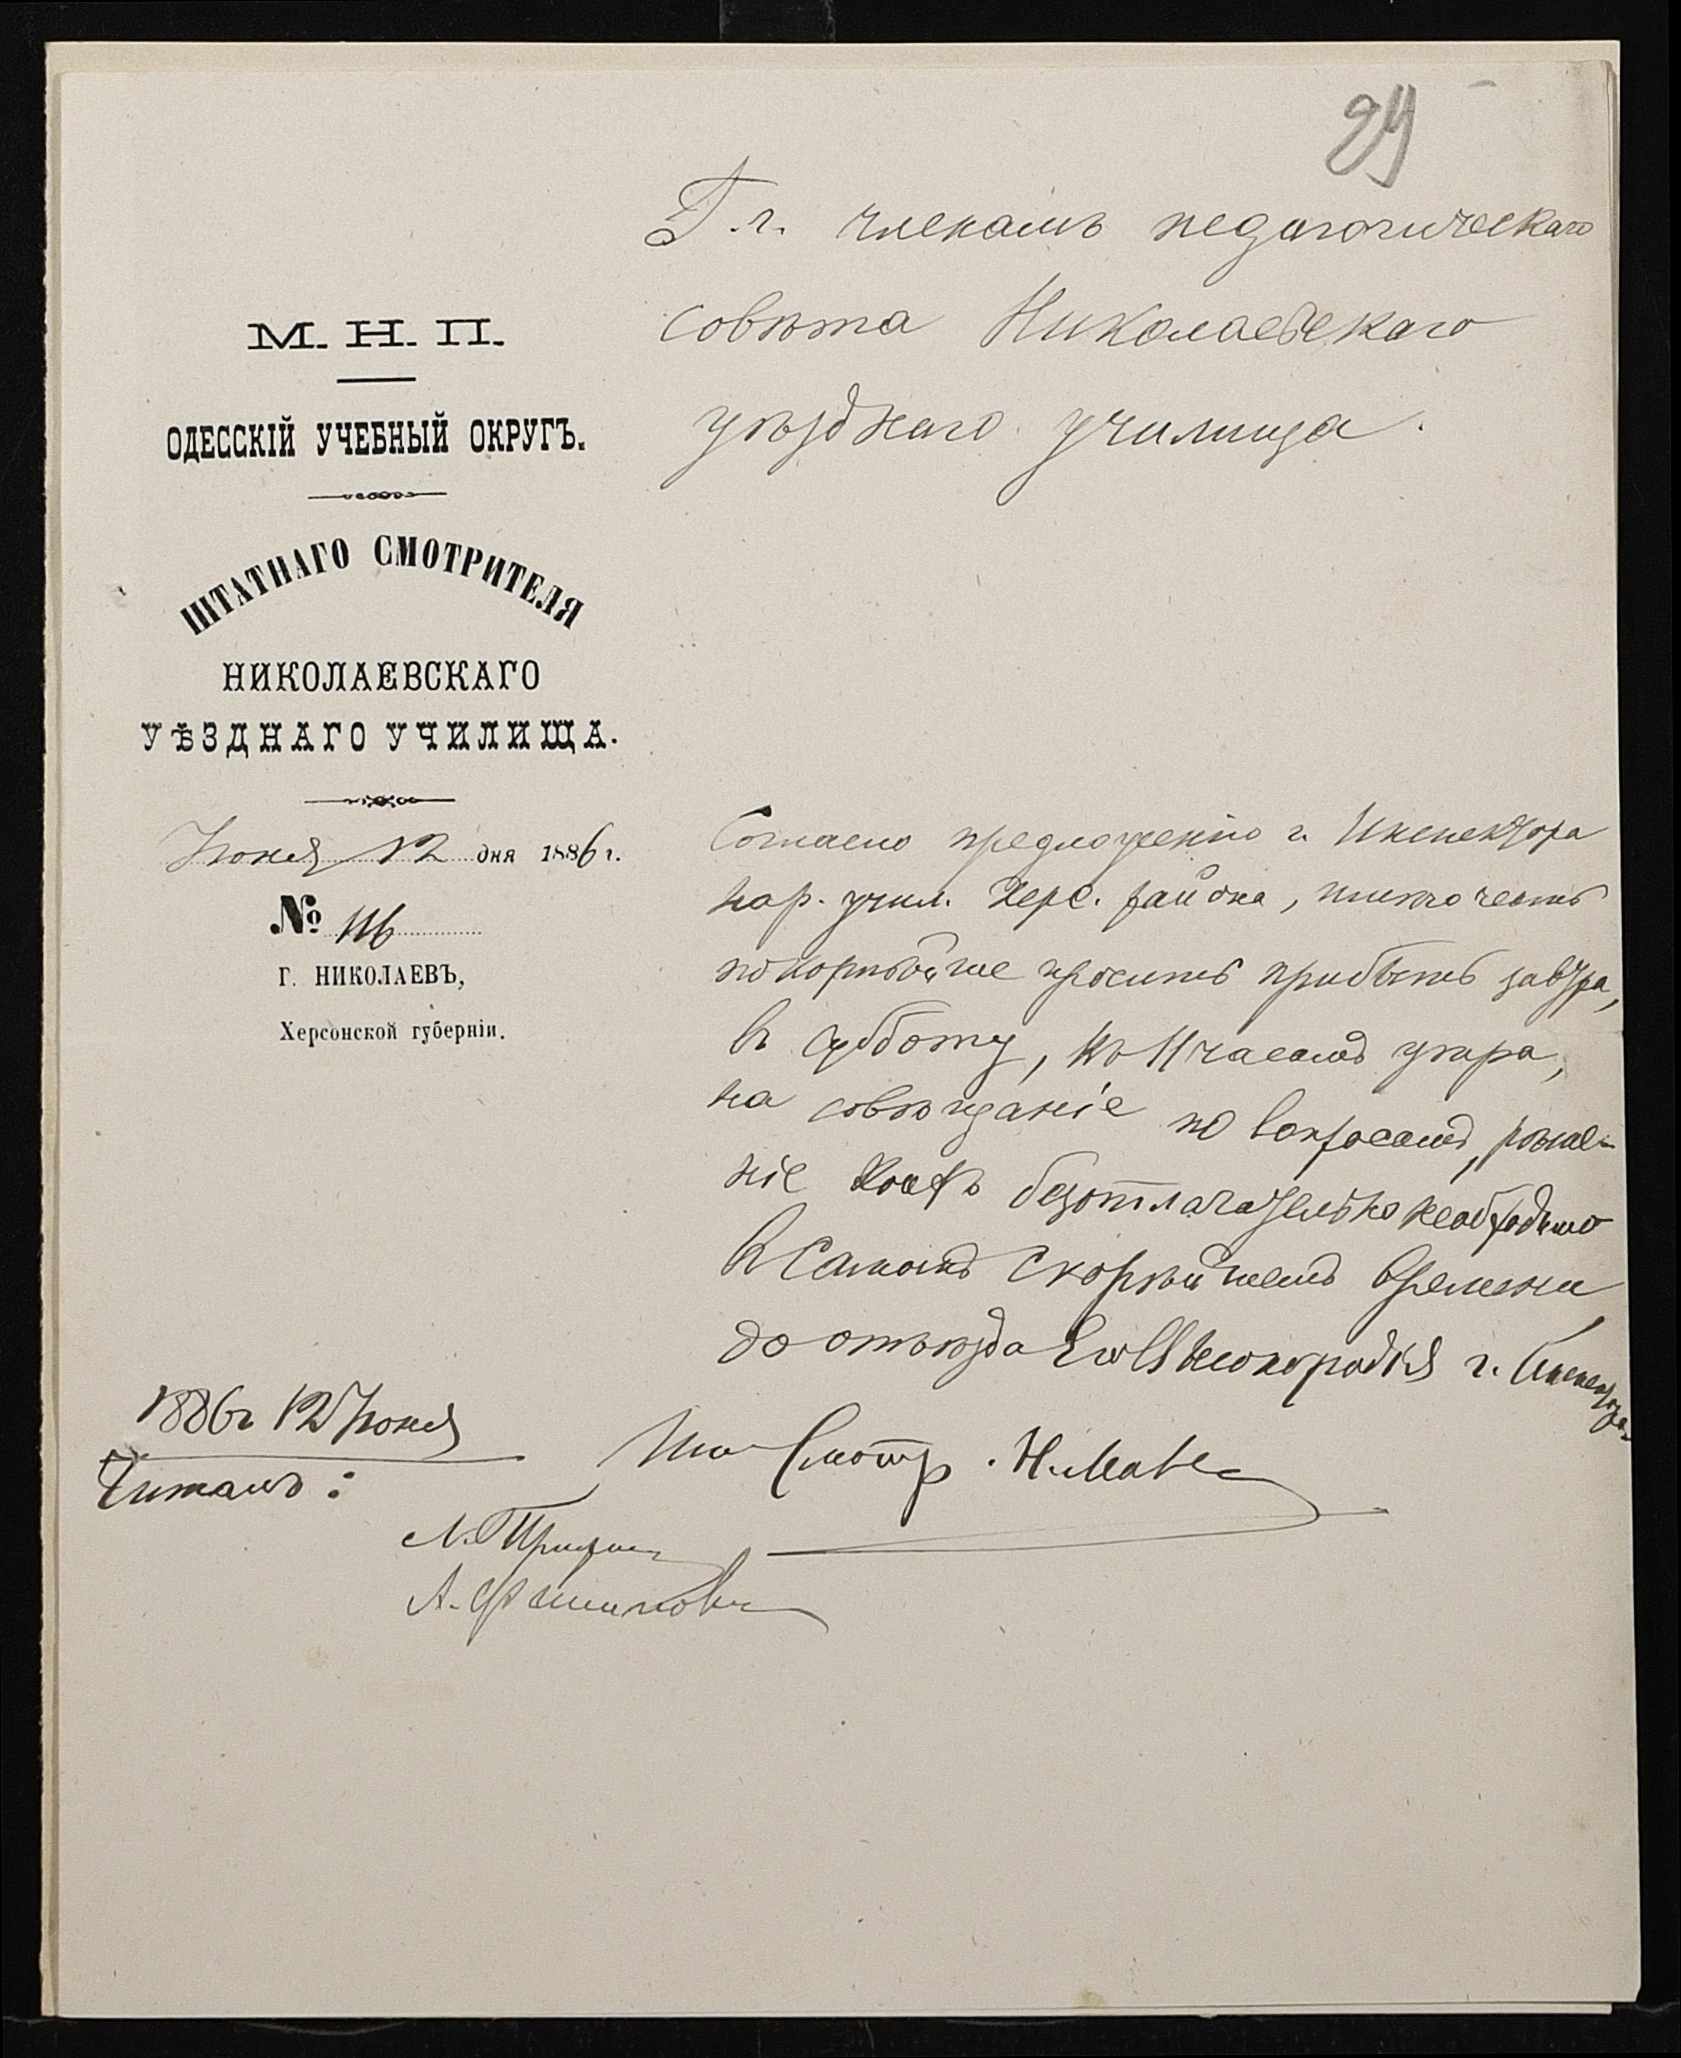 29
Г.г. членамъ педагогическаго
совѣта Николаевскаго
уѣзднаго училища.
М. Н. П.
ОДЕССКІЙ УЧЕБНЫЙ ОКРУГЪ.
ШТАТНАГО СМОТРИТЕЛЯ
НИКОЛАЕВСКАГО
УѢЗДНАГО УЧИЛИЩА.
Іюня 12 дня 1886 г.
№ 116
Г. НИКОЛАЕВЪ,
Херсонской губерніи.
Согласно предложенію г. Инспектора
нар. учил. Херс. района, имѣю честь
покорнѣйше просить прибыть завтра,
въ субботу, къ 11 часамъ утра,
на совѣщаніе по вопросамъ, рѣше-
ніе коихъ безотлагательно необходимо
въ самомъ скорѣйшемъ времени
до отъѣзда Его Высокородія г. Инспектора
Смотр. Н.
1886 г. 12 Іюня
Читалъ:
Л.
А.